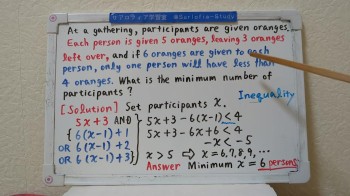 サブロウェブ学習室 @Serlafia-Study
At a gathering, participants are given oranges.
Each person is given 5 oranges, leaving 3 oranges
left over, and if 6 oranges are given to each
person, only one person will have less than
4 oranges. What is the minimum number of
participants?
Inequality
[Solution] Set participants x.
5x+3 AND
{ 6(x-1)+1
OR 6(x-1)+2
OR 6(x-1)+3 }
5x+3-6(x-1)<4
5x+3-6x+6<4
-x<-5
x>5 ⇨ x=6,7,8,9,...
Answer Minimum x=6 persons